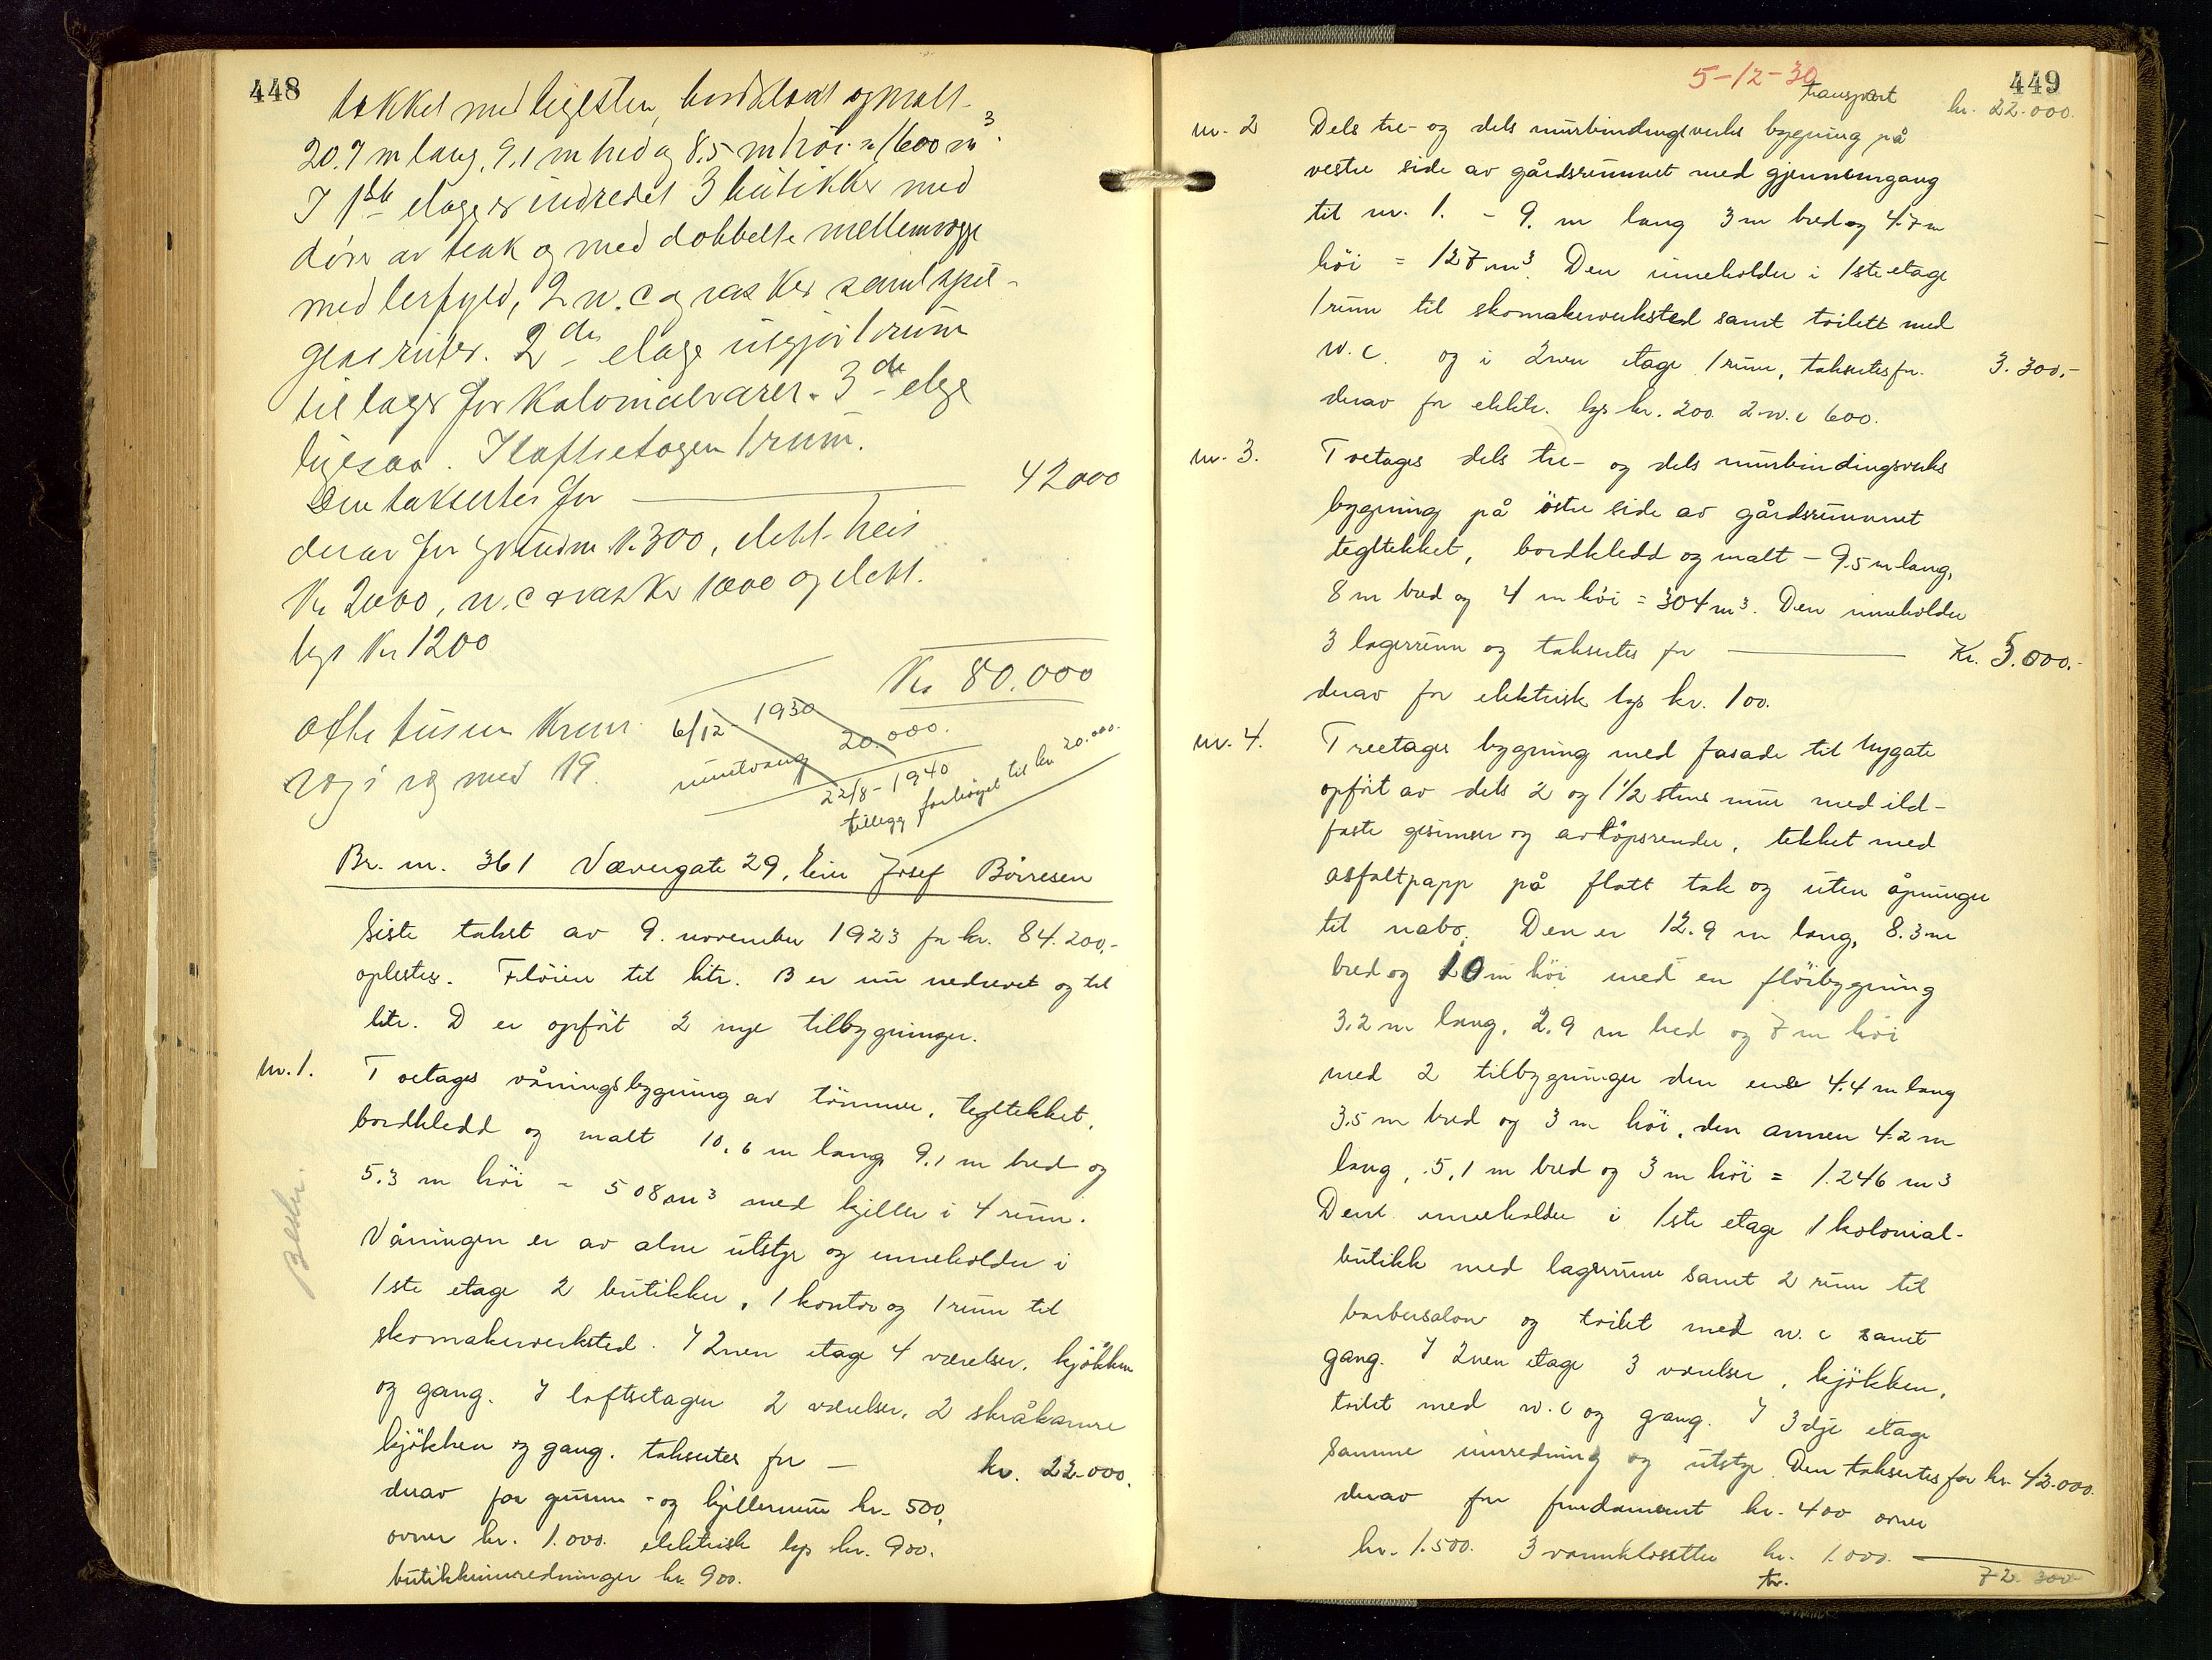 448
tekket med teglsten, bordklædt og malt
20.7 m lang, 9,1 m bred og 8,5 m höi = 1600 m³.
I 1ste etage er indredet 3 butikker med
döre av teak og med dobbelte mellemvægge
med lerfyld, 2 w.c og vasker samt speil-
glasruter. 2den etage utgjör 1 rum
til lager for Kolonialvarer. 3de etage
ligesaa. I loftsetagen 1 rum.
Den taksertes for 42000
derav for grundm. K. 300, elekt. heis
Kr 2000, w.c og vasker 1000 og elekt.
lys Kr 1200
Kr 80.000
6/12- 1930
20.000.
22/8 - 1940
tillegg forhöiet til kr 20.000.
Br. nr. 361 Værergate 29, eier Josef Börresen
Siste takst av 9. november 1923 for kr. 84.200,-
oplestes. Flöien til litr. B er nu nedrevet og til
litr. D er opfört 2 nye tilbygninger.
nr. 1. Toetages våningsbygning av tömmer, tegltekket,
bordkledd og malt 10,6 m lang 9,1 m bred og
5.3 m höi = 508 m³ med kjeller i 4 rum.
Våningen er av alm utstyr og inneholder i
1ste etage 2 butikker, 1 kontor og 1 rum til
skomakerverksted. I 2nen etage 4 værelser, kjökken
og gang. I loftsetagen 2 værelser, 2 skråkamre
kjökken og gang. taksertes for — kr. 22.000.
derav for grunn- og kjellermur kr. 500,
ovner kr. 1.000. elektrisk lys kr. 900.
butikkinnredninger kr. 900.
5-12-30
449
transport kr. 22.000.
nr. 2 Dels tre- og dels murbindingsverks bygning på
vestre side av gårdsrummet med gjennemgang
til nr. 1. - 9. m lang 3 m bred og 4.7 m
höi = 127 m³. Den inneholder i 1ste etage
1 rum til skomakerverksted samt toilett med
w.c. og i 2nen etage 1 rum, taksertes for. 3.300,-
derav for elektr. lys kr. 200. 2 w.c 600.
nr. 3. Toetages dels tre- og dels murbindingsverks
bygning på östre side av gårdsrummet
tegltekket, bordkledd og malt - 9.5 m lang,
8 m bred og 4 m höi = 304 m³. Den inneholder
3 lagerrum og taksertes for Kr. 5.000.-
derav for elektrisk lys kr. 100.
nr. 4. Treetages bygning med fasade til Nygate
opfört av dels 2 og 1½ stens mur med ild-
faste gesimser og avlöpsrender, tekket med
asfaltpapp på flatt tak og uten åpninger
til nabo. Den er 12.9 m lang, 8.3 m
bred og 10 m höi med en flöibygning
3.2 m lang, 2.9 m bred og 7 m höi
med 2 tilbygninger den ene 4.4 m lang
3.5 m bred og 3 m höi, den annen 4.2 m
lang, 5,1 m bred og 3 m höi = 1.246 m³
Den inneholder i 1ste etage 1 kolonial-
butikk med lagerrum samt 2 rum til
barbersalon og toilet med w.c samt
gang. I 2nen etage 3 værelser, kjökken,
toilet med w.c og gang. I 3dje etage
samme innredning og utstyr. Den taksertes for kr. 42.000.
derav for fundament kr. 400 ovner
kr. 1.500. 3 vannklosetter kr. 1.000.
tr. 72.300